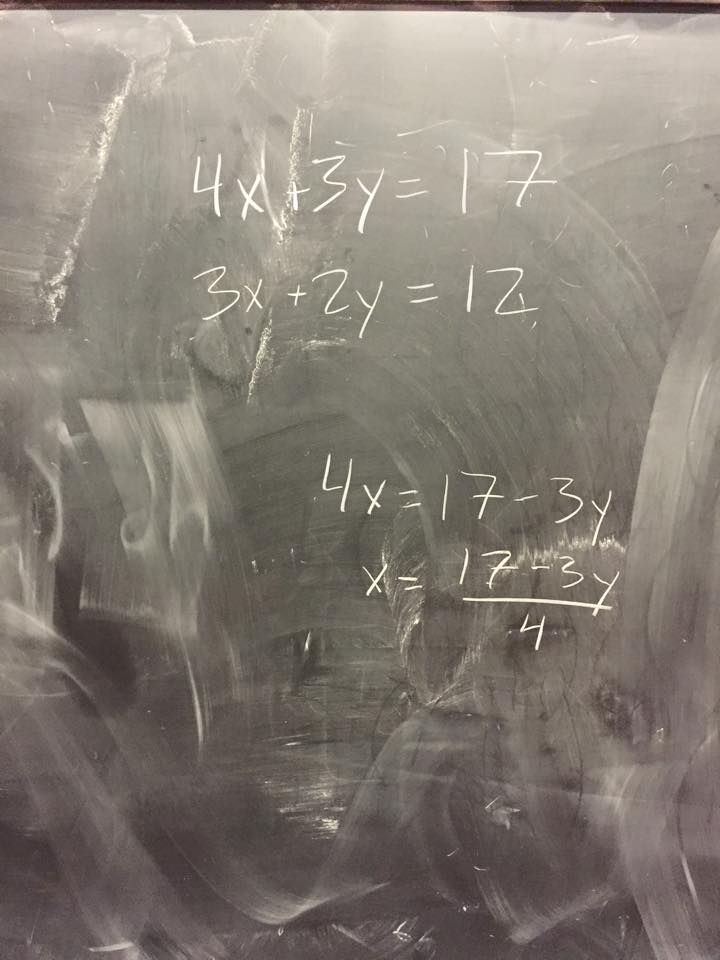 4x+3y=17
3x+2y=12
4x=17-3y
x=17-3y
4